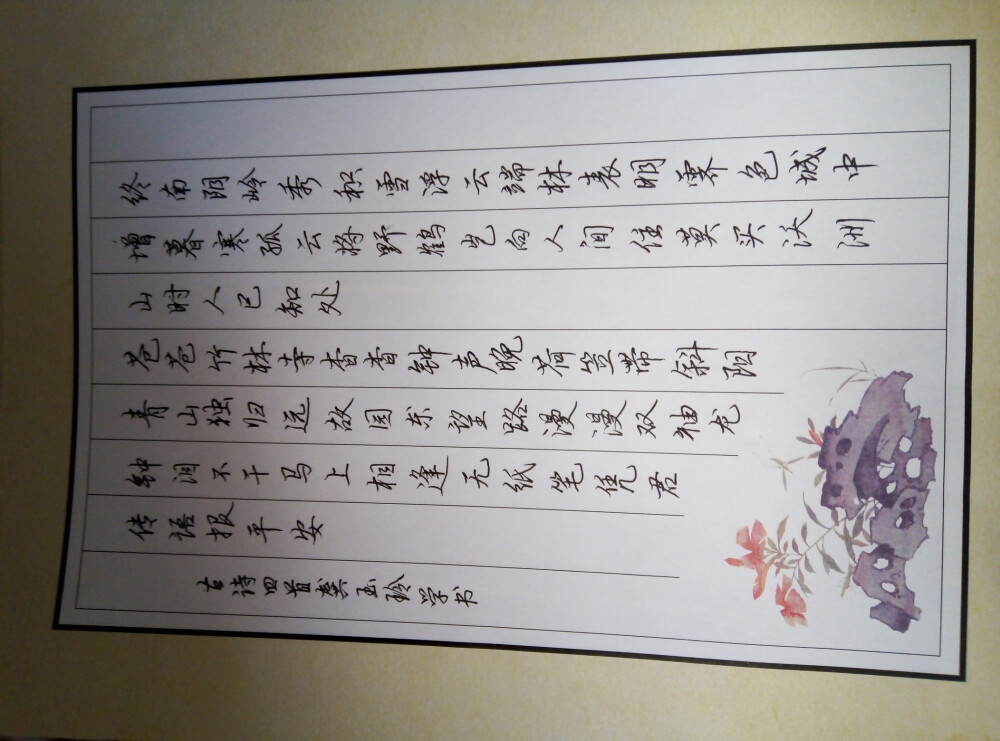 终南阴岭秀积雪浮云端林表明霁色城中
增暮寒孤云将野鹤岂向人间住莫买沃洲
山时人已知处
苍苍竹林寺杳杳钟声晚荷笠带斜阳
青山独归远故园东望路漫漫双袖龙
钟泪不干马上相逢无纸笔凭君
传语报平安
古诗四首龚玉玲学书